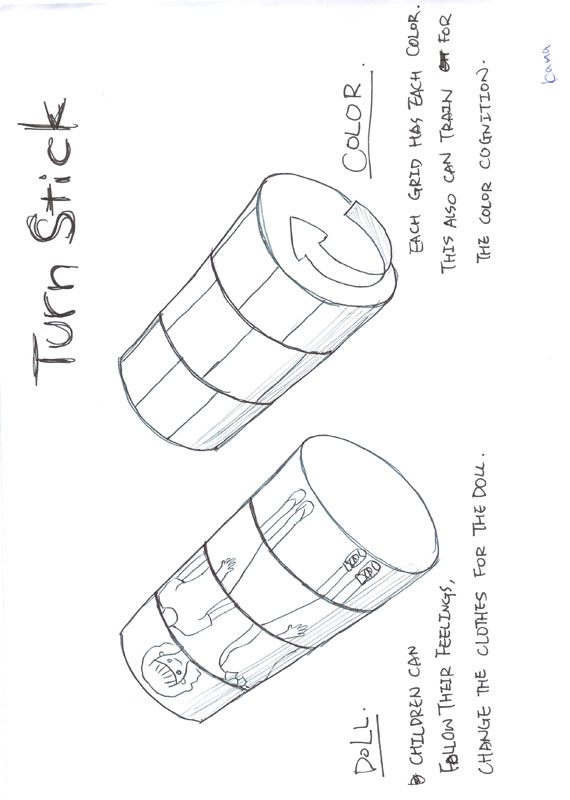 Turn Stick
DOLL.
CHILDREN CAN
FOLLOW THEIR FEELINGS,
CHANGE THE CLOTHES FOR THE DOLL.
COLOR.
EACH GRID HAS EACH COLOR.
THIS ALSO CAN TRAIN FOR
THE COLOR COGNITION.
kana